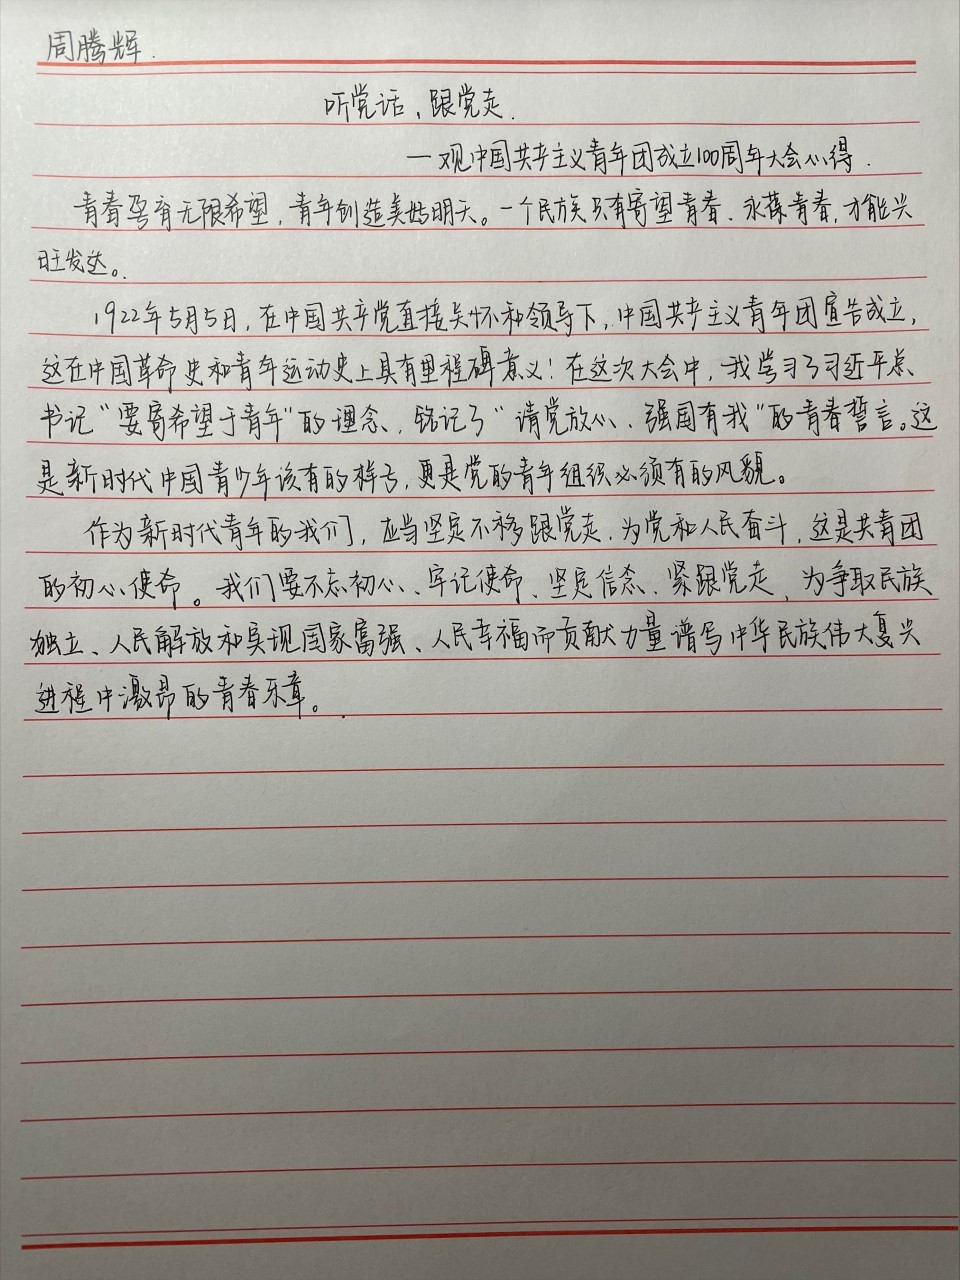 周腾辉.
听党话、跟党走.
一观中国共产主义青年团成立100周年大会心得.
青春孕育无限希望，青年创造美好明天。一个民族只有寄望青春、永葆青春，才能兴
旺发达。
1922年5月5日，在中国共产党直接关怀和领导下，中国共产主义青年团宣告成立，
这在中国革命史和青年运动史上具有里程碑意义！在这次大会中，我学习了习近平总
书记“要寄希望于青年”的理念，铭记了“请党放心、强国有我”的青春誓言。这
是新时代中国青少年该有的样子，更是党的青年组织必须有的风貌。
作为新时代青年的我们，应当坚定不移跟党走，为党和人民奋斗，这是共青团
的初心使命。我们要不忘初心、牢记使命、坚定信念、紧跟党走，为争取民族
独立、人民解放和实现国家富强、人民幸福而贡献力量谱写中华民族伟大复兴
进程中激昂的青春乐章。